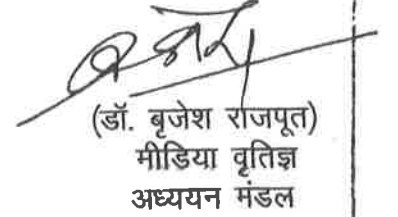 (डॉ. बृजेश राजपूत)
मीडिया वृतिज्ञ
अध्ययन मंडल